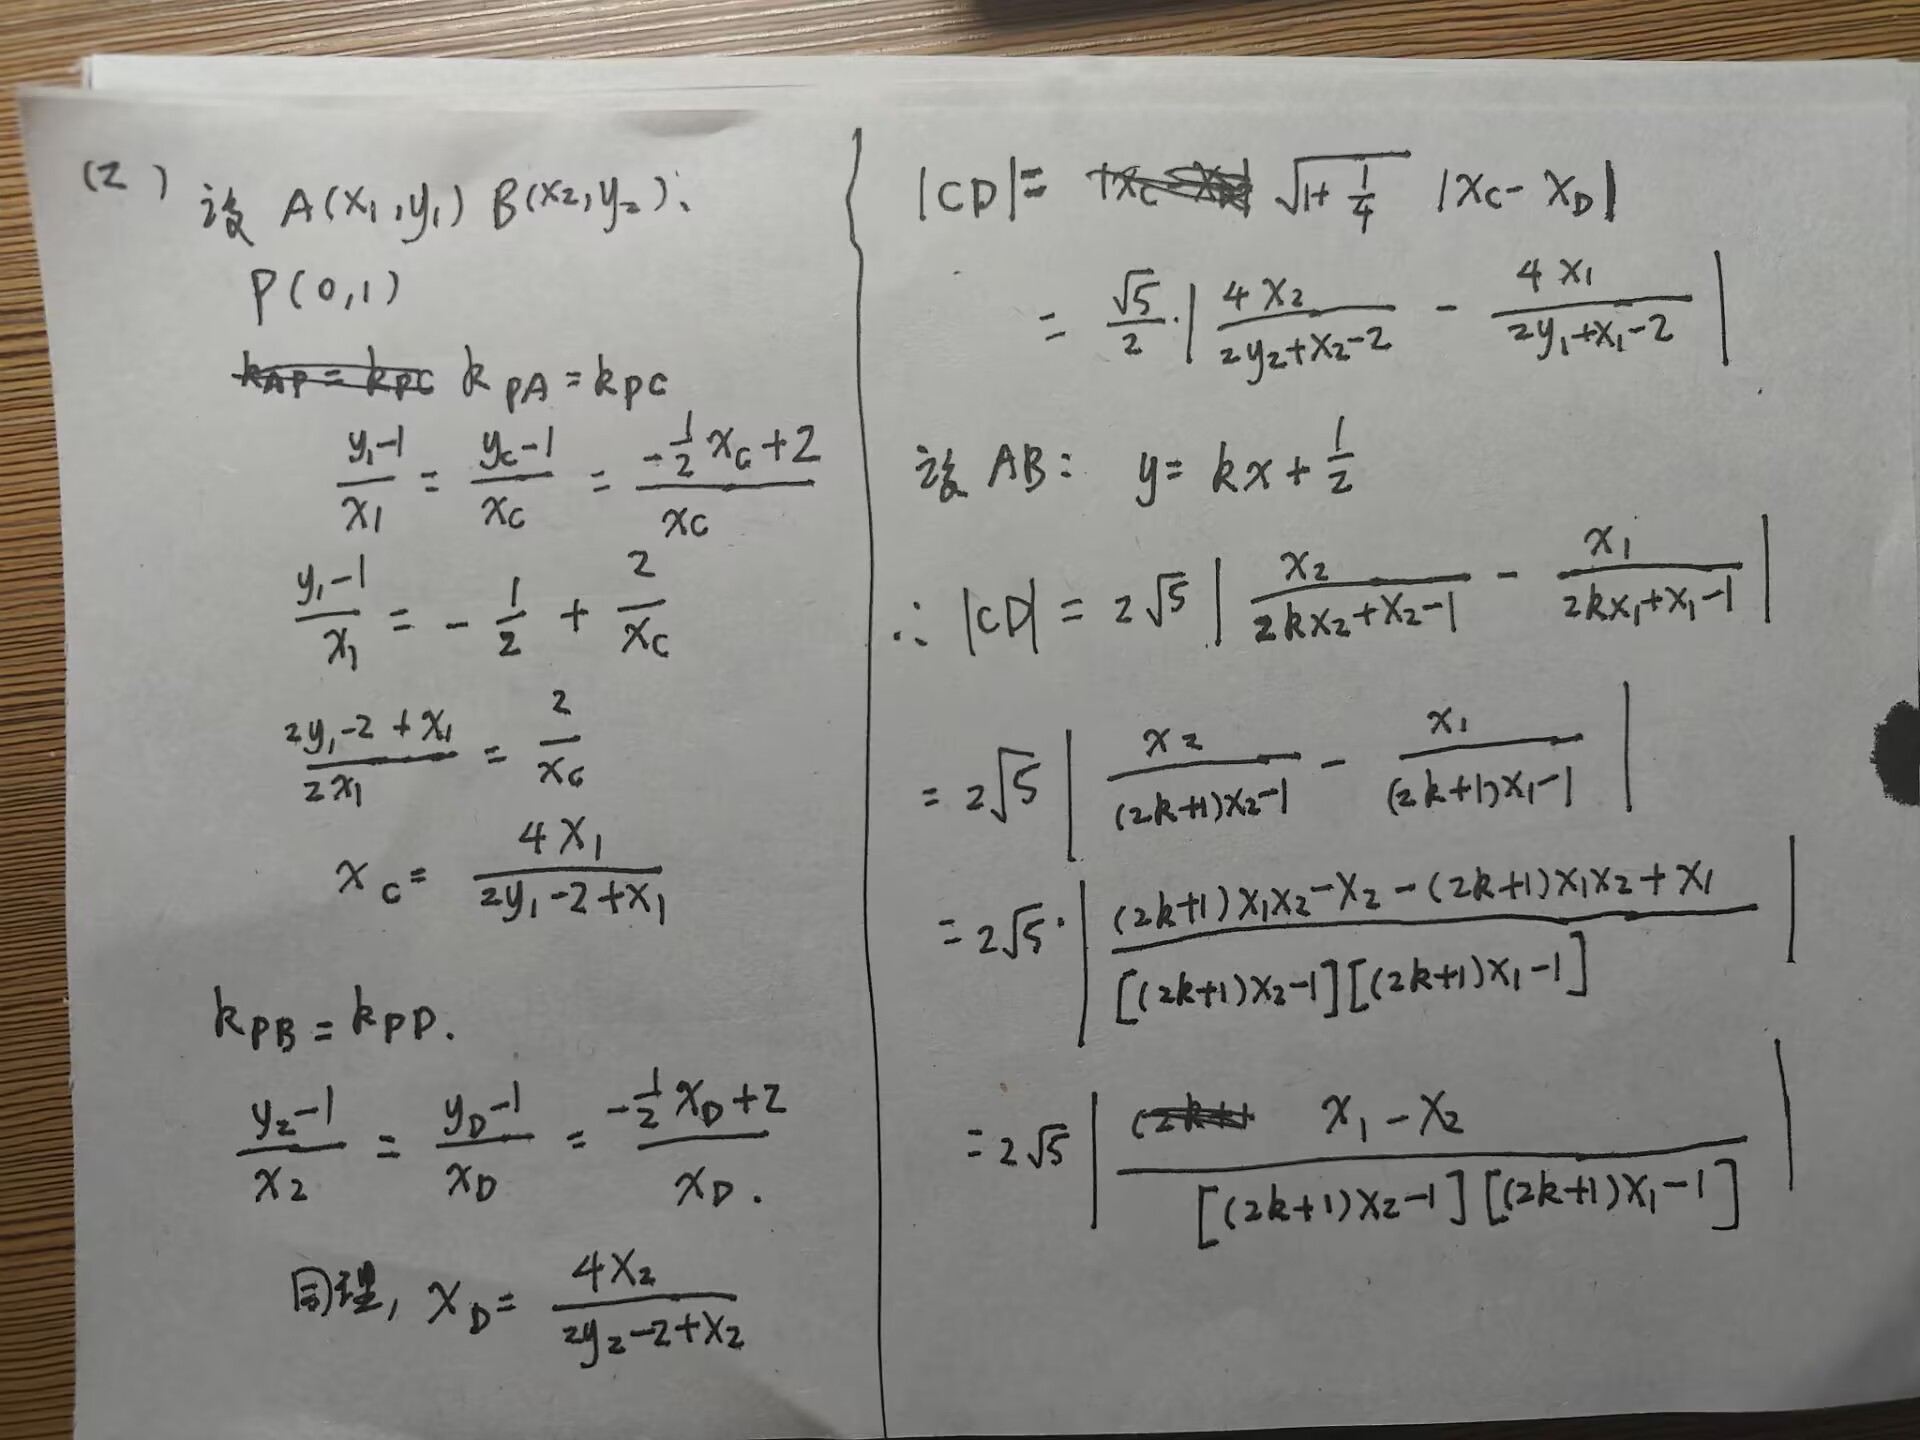 (2) 设 A(x₁,y₁) B(x₂,y₂).
P(0,1)
k_PA = k_PC
(y₁-1)/x₁ = (y_C-1)/x_C = (-1/2 x_C+2)/x_C
(y₁-1)/x₁ = -1/2 + 2/x_C
(2y₁-2+x₁)/(2x₁) = 2/x_C
x_C = 4x₁/(2y₁-2+x₁)
k_PB = k_PD.
(y₂-1)/x₂ = (y_D-1)/x_D = (-1/2 x_D+2)/x_D.
同理, x_D = 4x₂/(2y₂-2+x₂)
|CD| = √(1+1/4) |x_C - x_D|
= √5/2 · | 4x₂/(2y₂+x₂-2) - 4x₁/(2y₁+x₁-2) |
设 AB: y = kx + 1/2
∴ |CD| = 2√5 | x₂/(2kx₂+x₂-1) - x₁/(2kx₁+x₁-1) |
= 2√5 | x₂/((2k+1)x₂-1) - x₁/((2k+1)x₁-1) |
= 2√5 · | ((2k+1)x₁x₂-x₂-(2k+1)x₁x₂+x₁)/([(2k+1)x₂-1][(2k+1)x₁-1]) |
= 2√5 | (x₁-x₂)/([(2k+1)x₂-1][(2k+1)x₁-1]) |